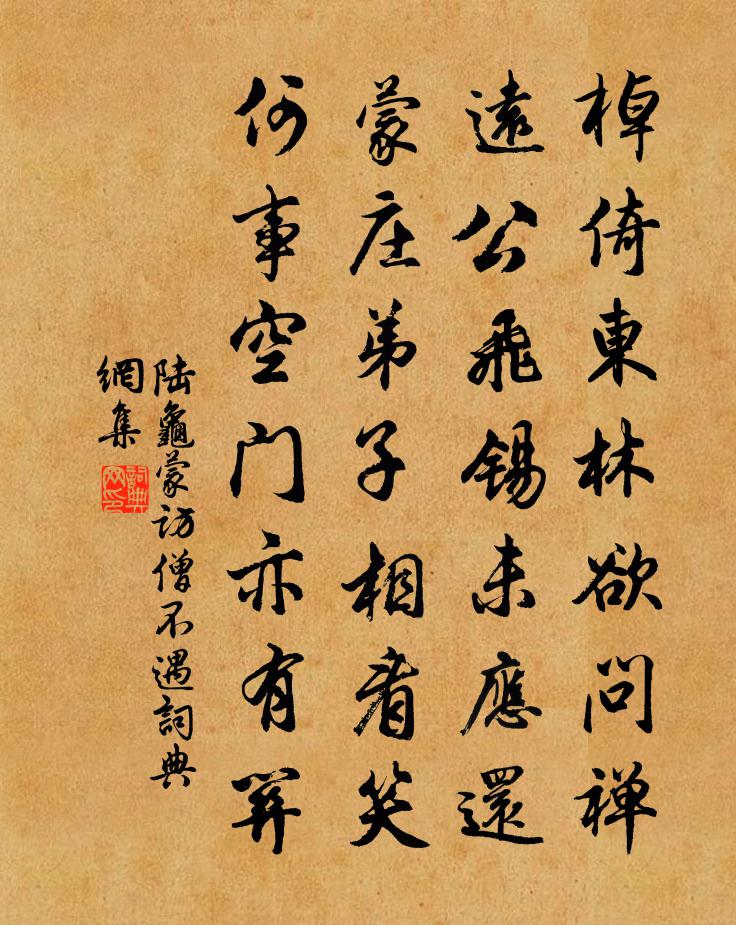 棹倚東林欲問禪
遠公飛錫未應還
蒙庄弟子相看笑
何事空门亦有關
陆龜蒙訪僧不遇詞典
網集
詞典
网印